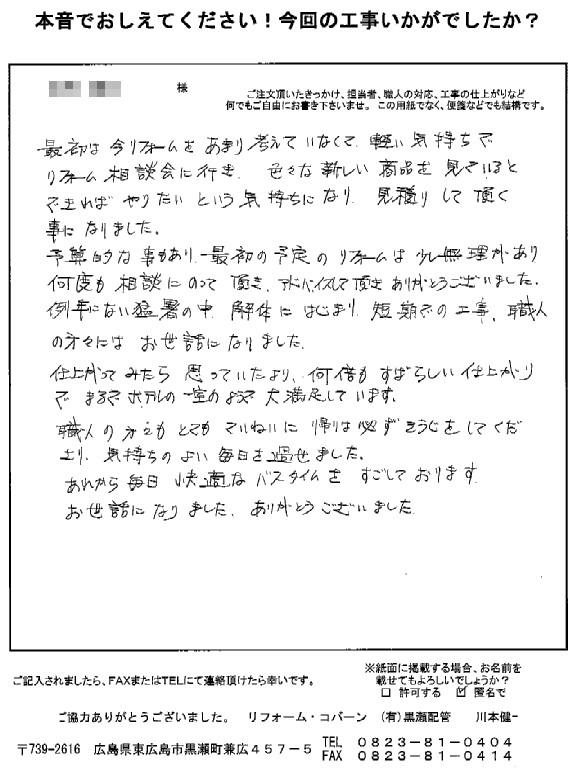 本音でおしえてください！今回の工事いかがでしたか？
様
ご注文頂いたきっかけ、担当者、職人の対応、工事の仕上がりなど
何でもご自由にお書き下さいませ。この用紙でなく、便箋などでも結構です。
最初は今リフォームをあまり考えていなくて、軽い気持ちで
リフォーム相談会に行き、色々な新しい商品を見ていると
できればやりたいという気持ちになり、見積りして頂く
事になりました。
予算的な事もあり、最初の予定のリフォームは少し無理があり
何度も相談にのって頂き、アドバイスして頂きありがとうございました。
例年にない猛暑の中、解体にはじまり、短期での工事、職人
の方々にはお世話になりました。
仕上がってみたら思っていたより、何倍もすばらしい仕上がり
で まるでホテルの一室のようで大満足しています。
職人の方々もとてもていねいに帰りは必ずそうじをしてくだ
さり、気持ちのよい毎日を過せました。
あれから毎日快適なバスタイムをすごしております。
お世話になりました。ありがとうございました。
ご記入されましたら、FAXまたはTELにて連絡頂けたら幸いです。
※紙面に掲載する場合、お名前を
載せてもよろしいでしょうか？
□ 許可する ☑ 匿名で
ご協力ありがとうございました。 リフォーム・コバーン （有）黒瀬配管 川本健一
〒739-2616 広島県東広島市黒瀬町兼広４５７－５
TEL ０８２３－８１－０４０４
FAX ０８２３－８１－０４１４